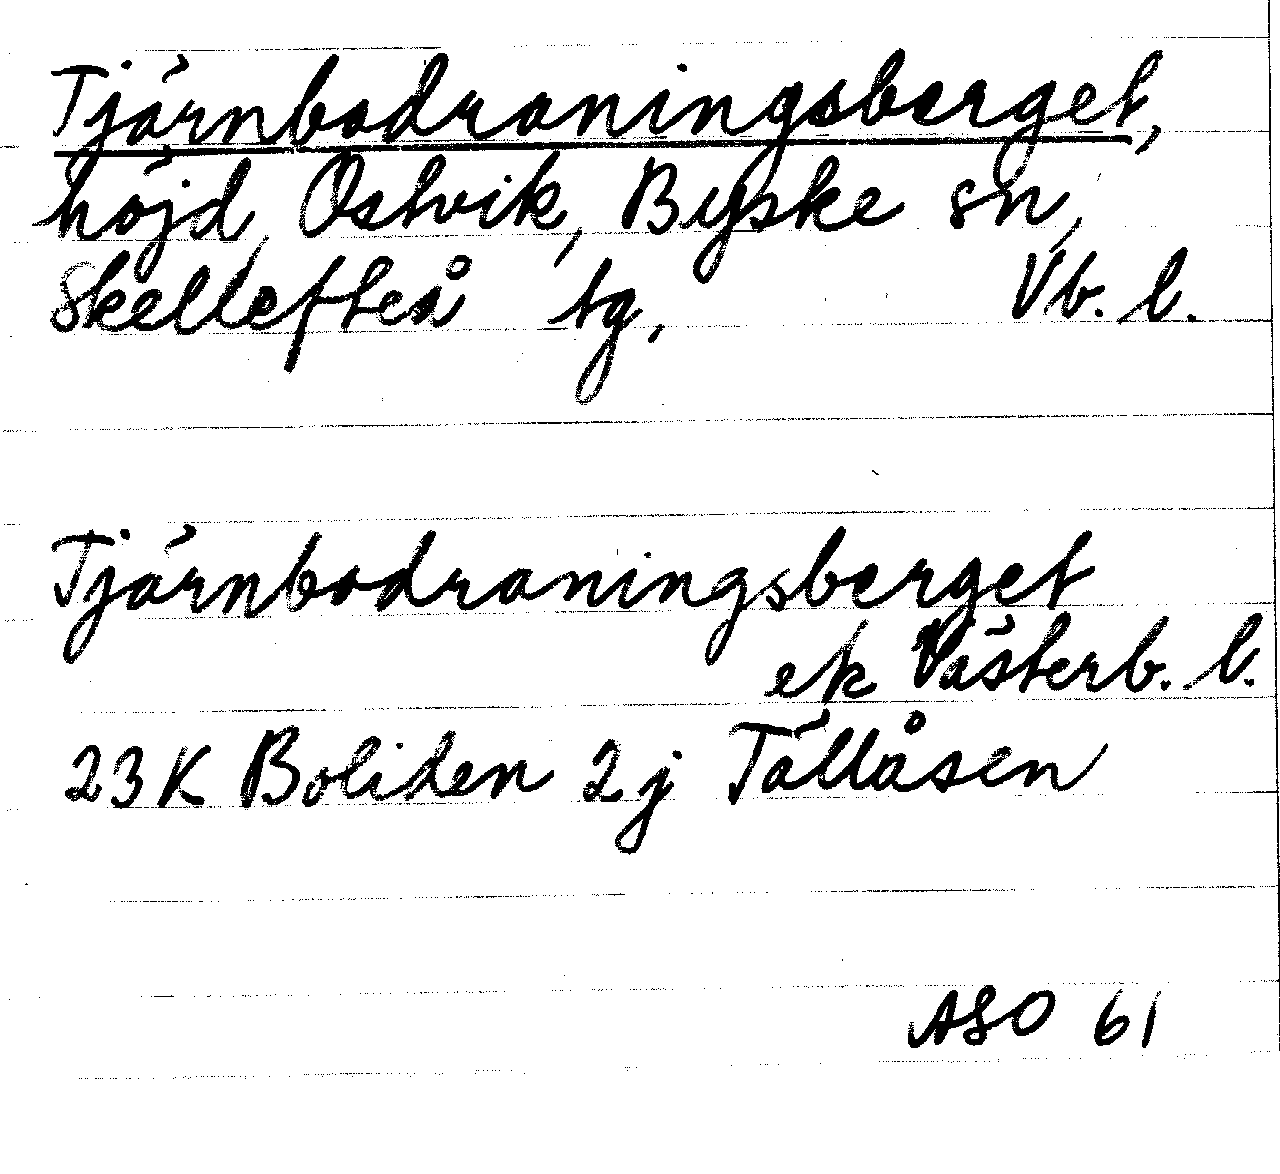 Tjärnbodraningsberget,
höjd, Ostvik, Byske sn,
Skellefteå tg, Vb. l.
Tjärnbodraningsberget
ek Västerb. l.
23K Boliden 2j Tällåsen
ASO 61